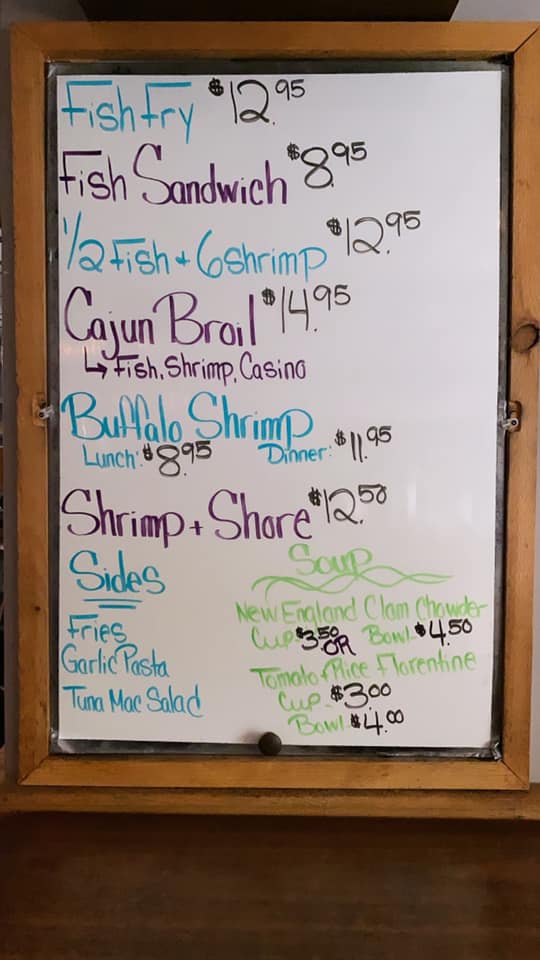 Fish Fry $12.95
Fish Sandwich $8.95
1/2 Fish + 6 Shrimp $12.95
Cajun Broil $14.95
↳ Fish, Shrimp, Casino
Buffalo Shrimp
Lunch: $8.95 Dinner: $11.95
Shrimp + Shore $12.50
Sides
Fries
Garlic Pasta
Tuna Mac Salad
Soup
New England Clam Chowder
Cup $3.50 OR Bowl $4.50
Tomato + Rice Florentine
Cup - $3.00
Bowl $4.00